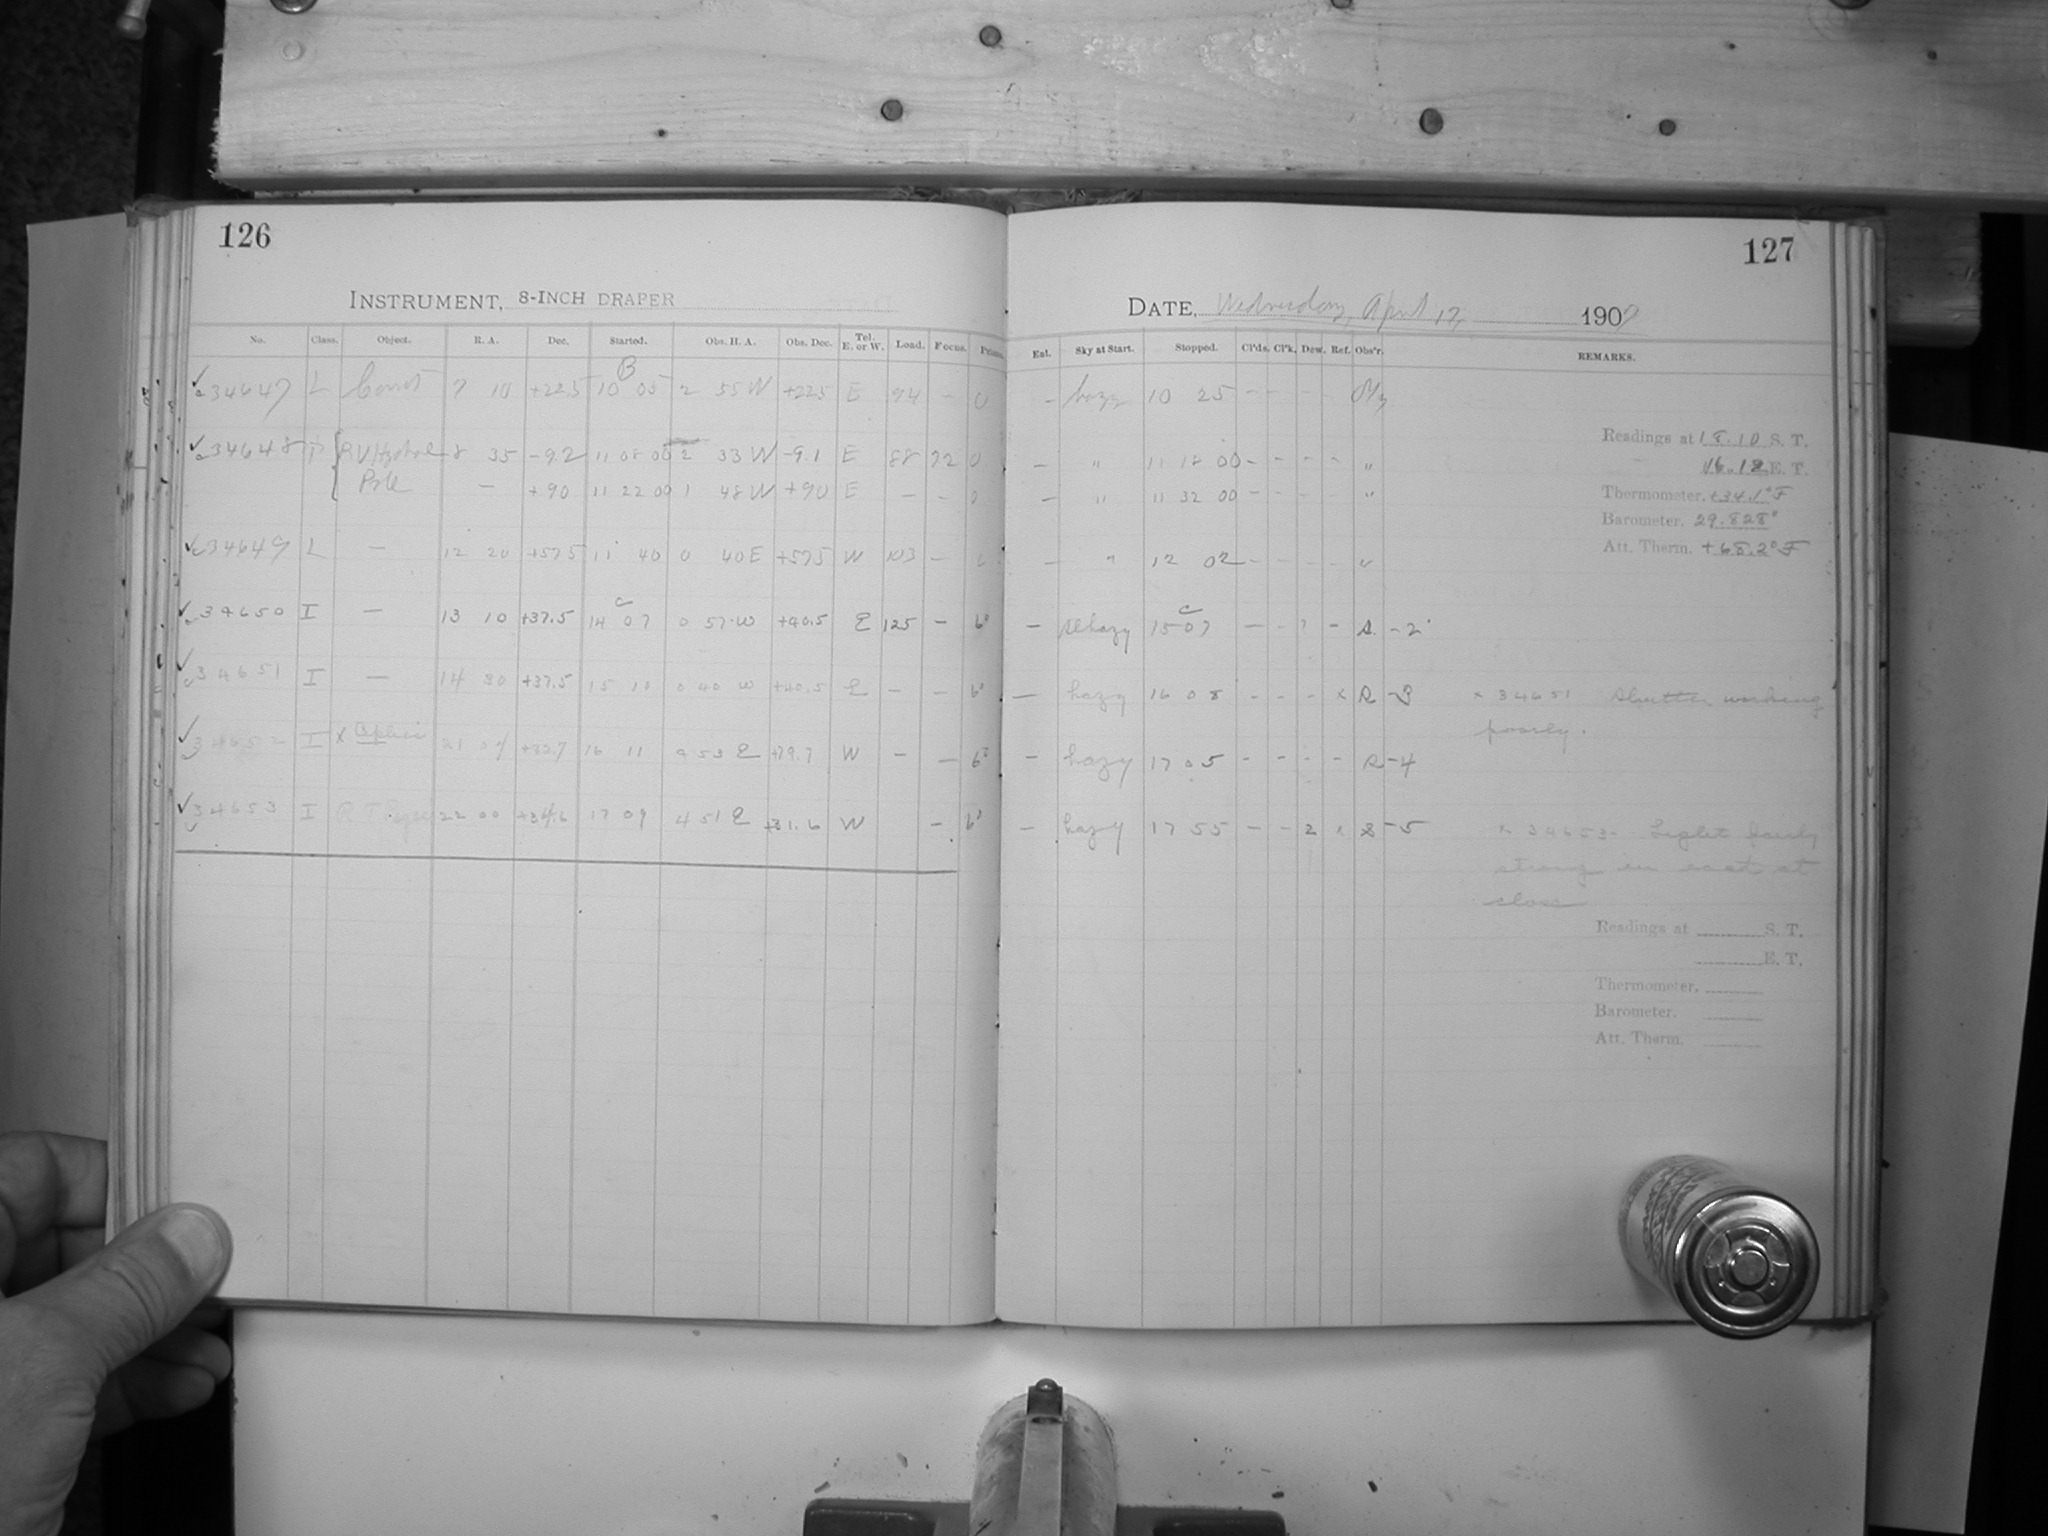 126
INSTRUMENT, 8-INCH DRAPER
No. Class. Object. R. A. Dec. Started. Obs. H. A. Obs. Dec. Tel. E. or W. Load. Focus. Prism.
B
34647 L Comet 7 10 +22.5 10 05 2 55 W +22.5 E 94 - 0
34648 RV Hydrae 8 35 -9.2 11 08 00 2 33 W -9.1 E 88 0
Pole - +90 11 22 00 1 48 W +90 E - - 0
34649 L - 12 20 +57.5 11 40 0 40 E +57.5 W 103 -
C
34650 I - 13 10 +37.5 14 07 0 57 W +40.5 E 125 - 6°
34651 I - 14 30 +37.5 15 10 0 40 W +40.5 E - - 6°
34652 I x 16 11 4 53 E +79.7 W - - 6°
34653 I 22 00 +34.6 17 09 4 51 E +31.6 W - 6°
127
DATE, Wednesday, April 17, 1907
Ent. Sky at Start. Stopped. Cl'ds. Cl'k. Dew. Ref. Obs'r. REMARKS.
- hazy 10 25 - - - -
- " 11 18 00 - - - - "
- " 11 32 00 - - - - "
- " 12 02 - - - - "
C
- 15 07 - - - R. -2
- hazy 16 08 - - - x R -3
- hazy 17 05 - - - - R -4
- hazy 17 55 - - 2 x R -5
Readings at 18.10 S. T.
16.12 E. T.
Thermometer, +34.1°F
Barometer, 29.828°
Att. Therm. +68.2°F
x 34651 Shutter working
poorly.
x 34653 - Light fairly
strong in east at
close
Readings at S. T.
E. T.
Thermometer,
Barometer.
Att. Therm.